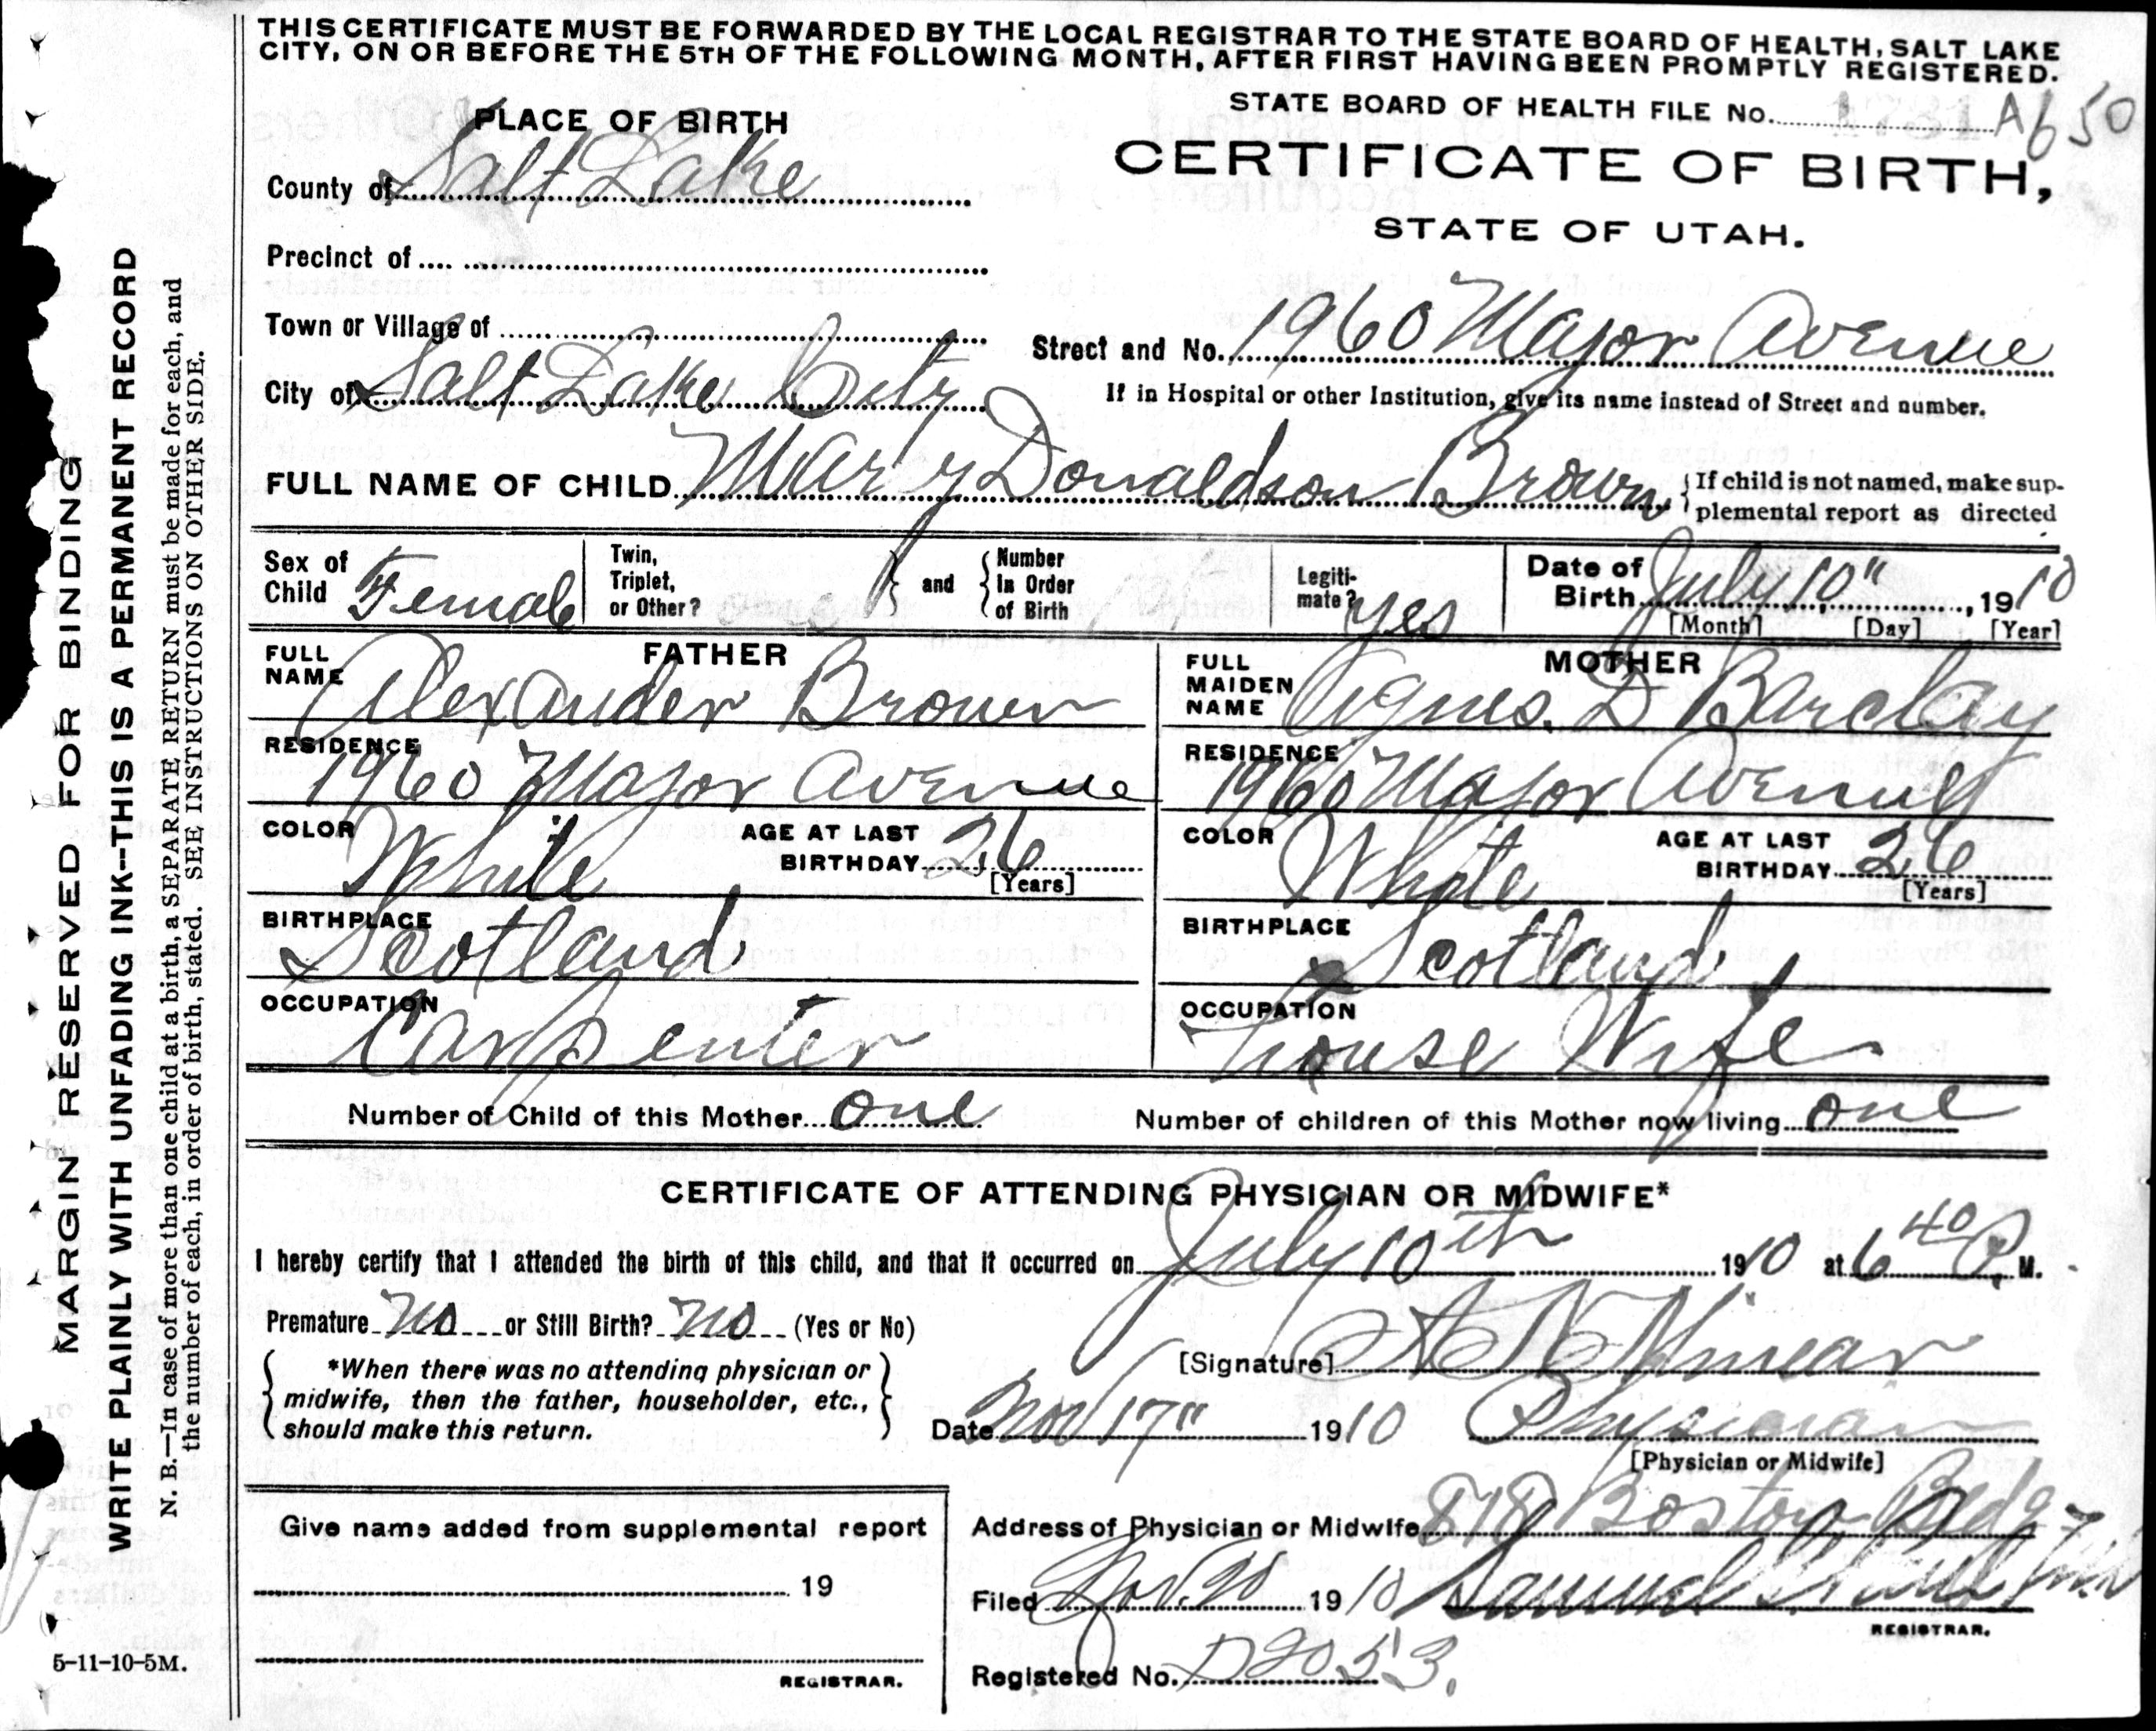 THIS CERTIFICATE MUST BE FORWARDED BY THE LOCAL REGISTRAR TO THE STATE BOARD OF HEALTH, SALT LAKE
CITY, ON OR BEFORE THE 5TH OF THE FOLLOWING MONTH, AFTER FIRST HAVING BEEN PROMPTLY REGISTERED.
PLACE OF BIRTH
STATE BOARD OF HEALTH FILE No. A650
CERTIFICATE OF BIRTH,
STATE OF UTAH.
County of Salt Lake
Precinct of
Town or Village of
Street and No. 1960 Major Avenue
City of Salt Lake City
If in Hospital or other Institution, give its name instead of Street and number.
FULL NAME OF CHILD Mary Donaldson Brown
If child is not named, make sup-
plemental report as directed
Sex of Child Female
Twin, Triplet, or Other?
and
Number In Order of Birth
Legiti-mate? yes
Date of Birth July 10", 1910
[Month] [Day] [Year]
FATHER
FULL NAME Alexander Brown
RESIDENCE 1960 Major Avenue
COLOR White
AGE AT LAST BIRTHDAY 26
[Years]
BIRTHPLACE Scotland
OCCUPATION Carpenter
MOTHER
FULL MAIDEN NAME Agnes. D Barclay
RESIDENCE 1960 Major Avenue
COLOR White
AGE AT LAST BIRTHDAY 26
[Years]
BIRTHPLACE Scotland
OCCUPATION House Wife
Number of Child of this Mother one
Number of children of this Mother now living one
CERTIFICATE OF ATTENDING PHYSICIAN OR MIDWIFE*
I hereby certify that I attended the birth of this child, and that it occurred on July 10th 1910 at 6 40 P. M.
Premature No or Still Birth? No (Yes or No)
*When there was no attending physician or
midwife, then the father, householder, etc.,
should make this return.
[Signature]
Date Nov 17" 1910 Physician
[Physician or Midwife]
Address of Physician or Midwife 818 Boston Bldg
Filed Nov. 20 1910 Samuel
REGISTRAR.
Registered No. D2053.
Give name added from supplemental report
19
REGISTRAR.
5-11-10-5M.
MARGIN RESERVED FOR BINDING
WRITE PLAINLY WITH UNFADING INK--THIS IS A PERMANENT RECORD
N. B.—In case of more than one child at a birth, a SEPARATE RETURN must be made for each, and
the number of each, in order of birth, stated. SEE INSTRUCTIONS ON OTHER SIDE.